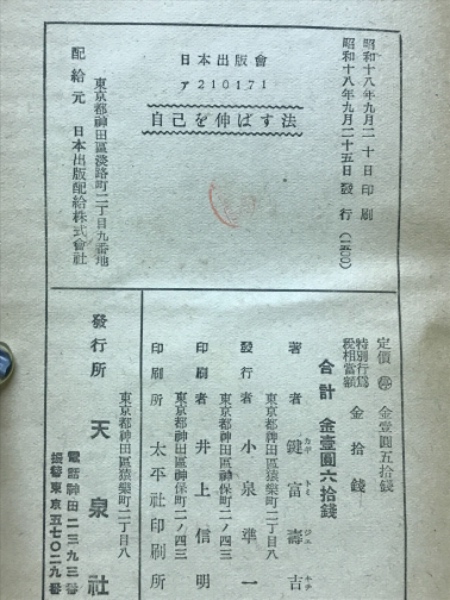 昭和十八年九月二十日印刷
昭和十八年九月二十五日發行（一五〇〇）
日本出版會
ア210171
自己を伸ばす法
東京都神田區淡路町二丁目九番地
配給元 日本出版配給株式會社
定價 停 金壹圓五拾錢
特別行爲稅相當額 金拾錢
合計 金壹圓六拾錢
著者 鍵富壽吉
東京都神田區猿樂町二丁目八
發行者 小泉準一
東京都神田區神保町二ノ四三
印刷者 井上信明
東京都神田區神保町二ノ四三
印刷所 太平社印刷所
東京都神田區猿樂町二丁目八
發行所 天泉社
電話神田二三九三番
振替東京五七〇二九番